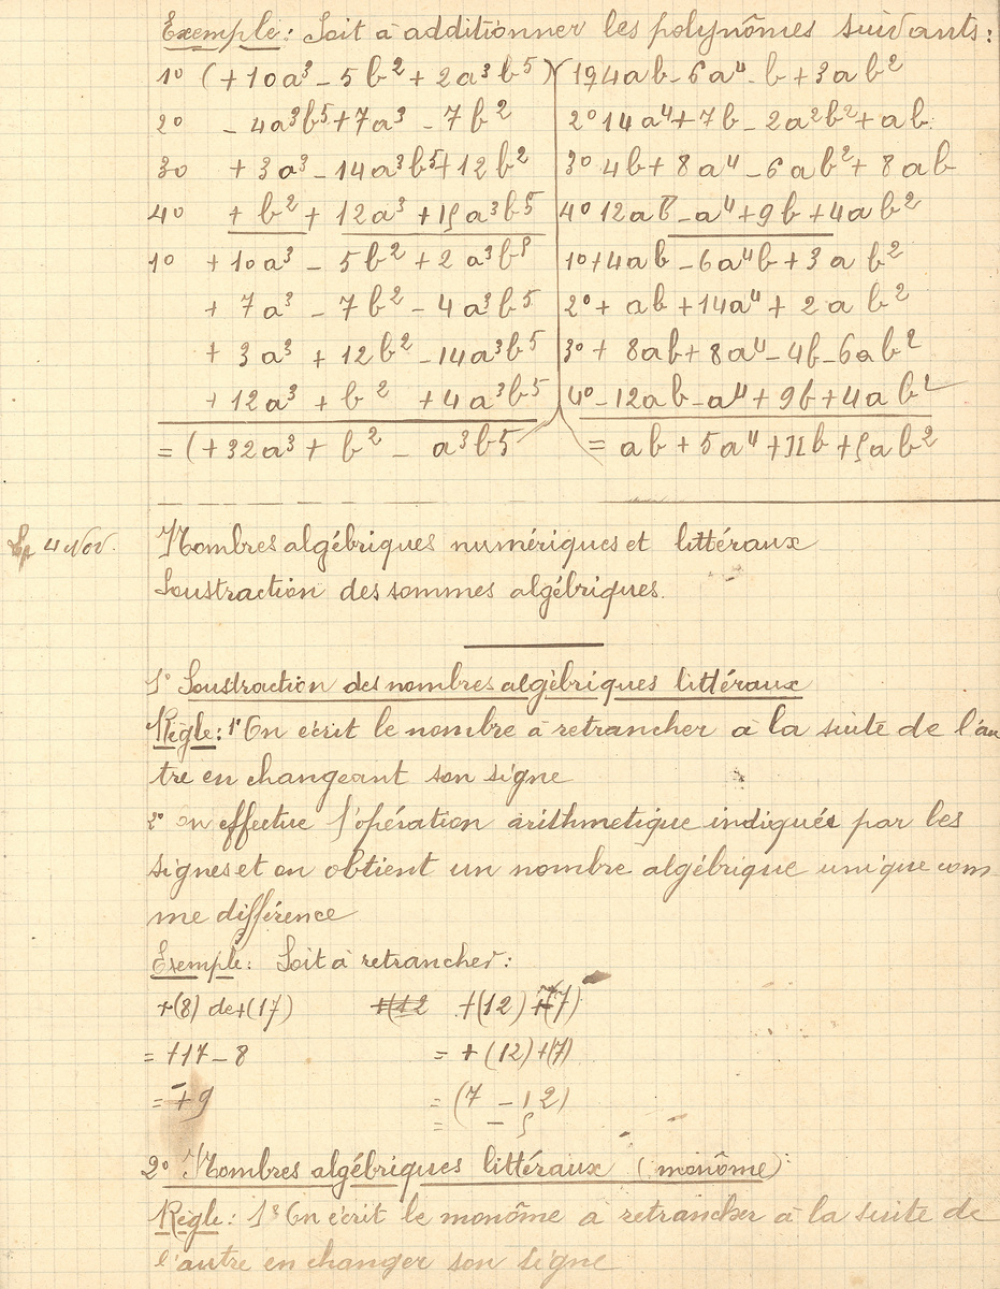 Exemple: Soit à additionner les polynômes suivants:
1º (+10a³ - 5b² + 2a³b⁵)
2º - 4a³b⁵ + 7a³ - 7b²
3º + 3a³ - 14a³b⁵ + 12b²
4º + b² + 12a³ + 15a³b⁵
1º + 10a³ - 5b² + 2a³b⁵
+ 7a³ - 7b² - 4a³b⁵
+ 3a³ + 12b² - 14a³b⁵
+ 12a³ + b² + 4a³b⁵
= (+32a³ + b² - a³b⁵
1º 4ab - 6a⁴ - b + 3ab²
2º 14a⁴ + 7b - 2a²b² + ab
3º 4b + 8a⁴ - 6ab² + 8ab
4º 12ab - a⁴ + 9b + 4ab²
1º + 4ab - 6a⁴b + 3ab²
2º + ab + 14a⁴ + 2ab²
3º + 8ab + 8a⁴ - 4b - 6ab²
4º - 12ab - a⁴ + 9b + 4ab²
= ab + 5a⁴ + 11b + 5ab²
4 Nov.
Nombres algébriques numériques et littéraux
Soustraction des sommes algébriques.
1º Soustraction des nombres algébriques littéraux
Règle: 1º On écrit le nombre à retrancher à la suite de l'au
tre en changeant son signe
2º on effectue l'opération arithmetique indiquée par les
signes et on obtient un nombre algébrique unique com
me différence
Exemple: Soit à retrancher:
+(8) de +(17)
= +17 - 8
= +9
+(12 +(12) +(7)
= +(12) +(7)
= (7 - 12)
= - 5
2º Nombres algébriques littéraux (monôme):
Règle: 1º On écrit le monôme à retrancher à la suite de
l'autre en changer son signe